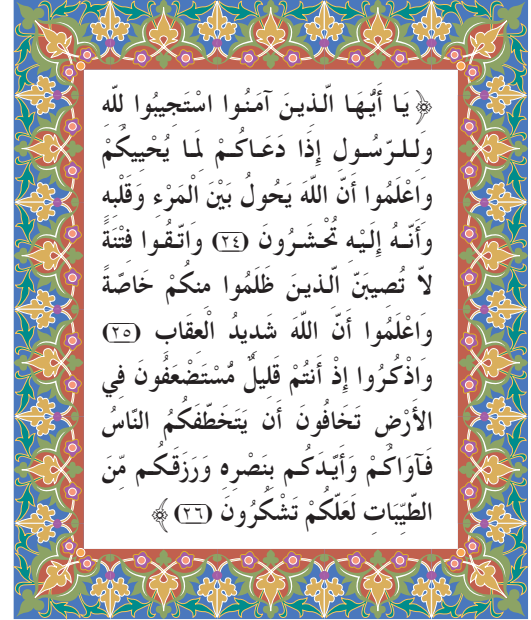 ﴿ يَا أَيُّهَا الَّذِينَ آمَنُوا اسْتَجِيبُوا لِلَّهِ
وَلِلرَّسُولِ إِذَا دَعَاكُمْ لِمَا يُحْيِيكُمْ
وَاعْلَمُوا أَنَّ اللَّهَ يَحُولُ بَيْنَ الْمَرْءِ وَقَلْبِهِ
وَأَنَّهُ إِلَيْهِ تُحْشَرُونَ (٢٤) وَاتَّقُوا فِتْنَةً
لَّا تُصِيبَنَّ الَّذِينَ ظَلَمُوا مِنكُمْ خَاصَّةً
وَاعْلَمُوا أَنَّ اللَّهَ شَدِيدُ الْعِقَابِ (٢٥)
وَاذْكُرُوا إِذْ أَنتُمْ قَلِيلٌ مُّسْتَضْعَفُونَ فِي
الأَرْضِ تَخَافُونَ أَن يَتَخَطَّفَكُمُ النَّاسُ
فَآوَاكُمْ وَأَيَّدَكُم بِنَصْرِهِ وَرَزَقَكُم مِّنَ
الطَّيِّبَاتِ لَعَلَّكُمْ تَشْكُرُونَ (٢٦) ﴾